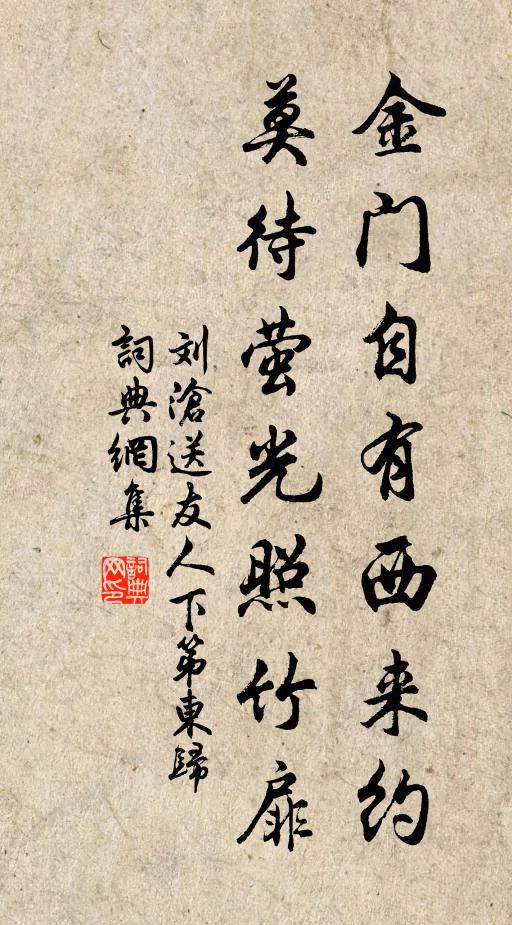 金门自有西来约
莫待萤光照竹扉
刘滄送友人下第東歸
詞典網集
詞典网印